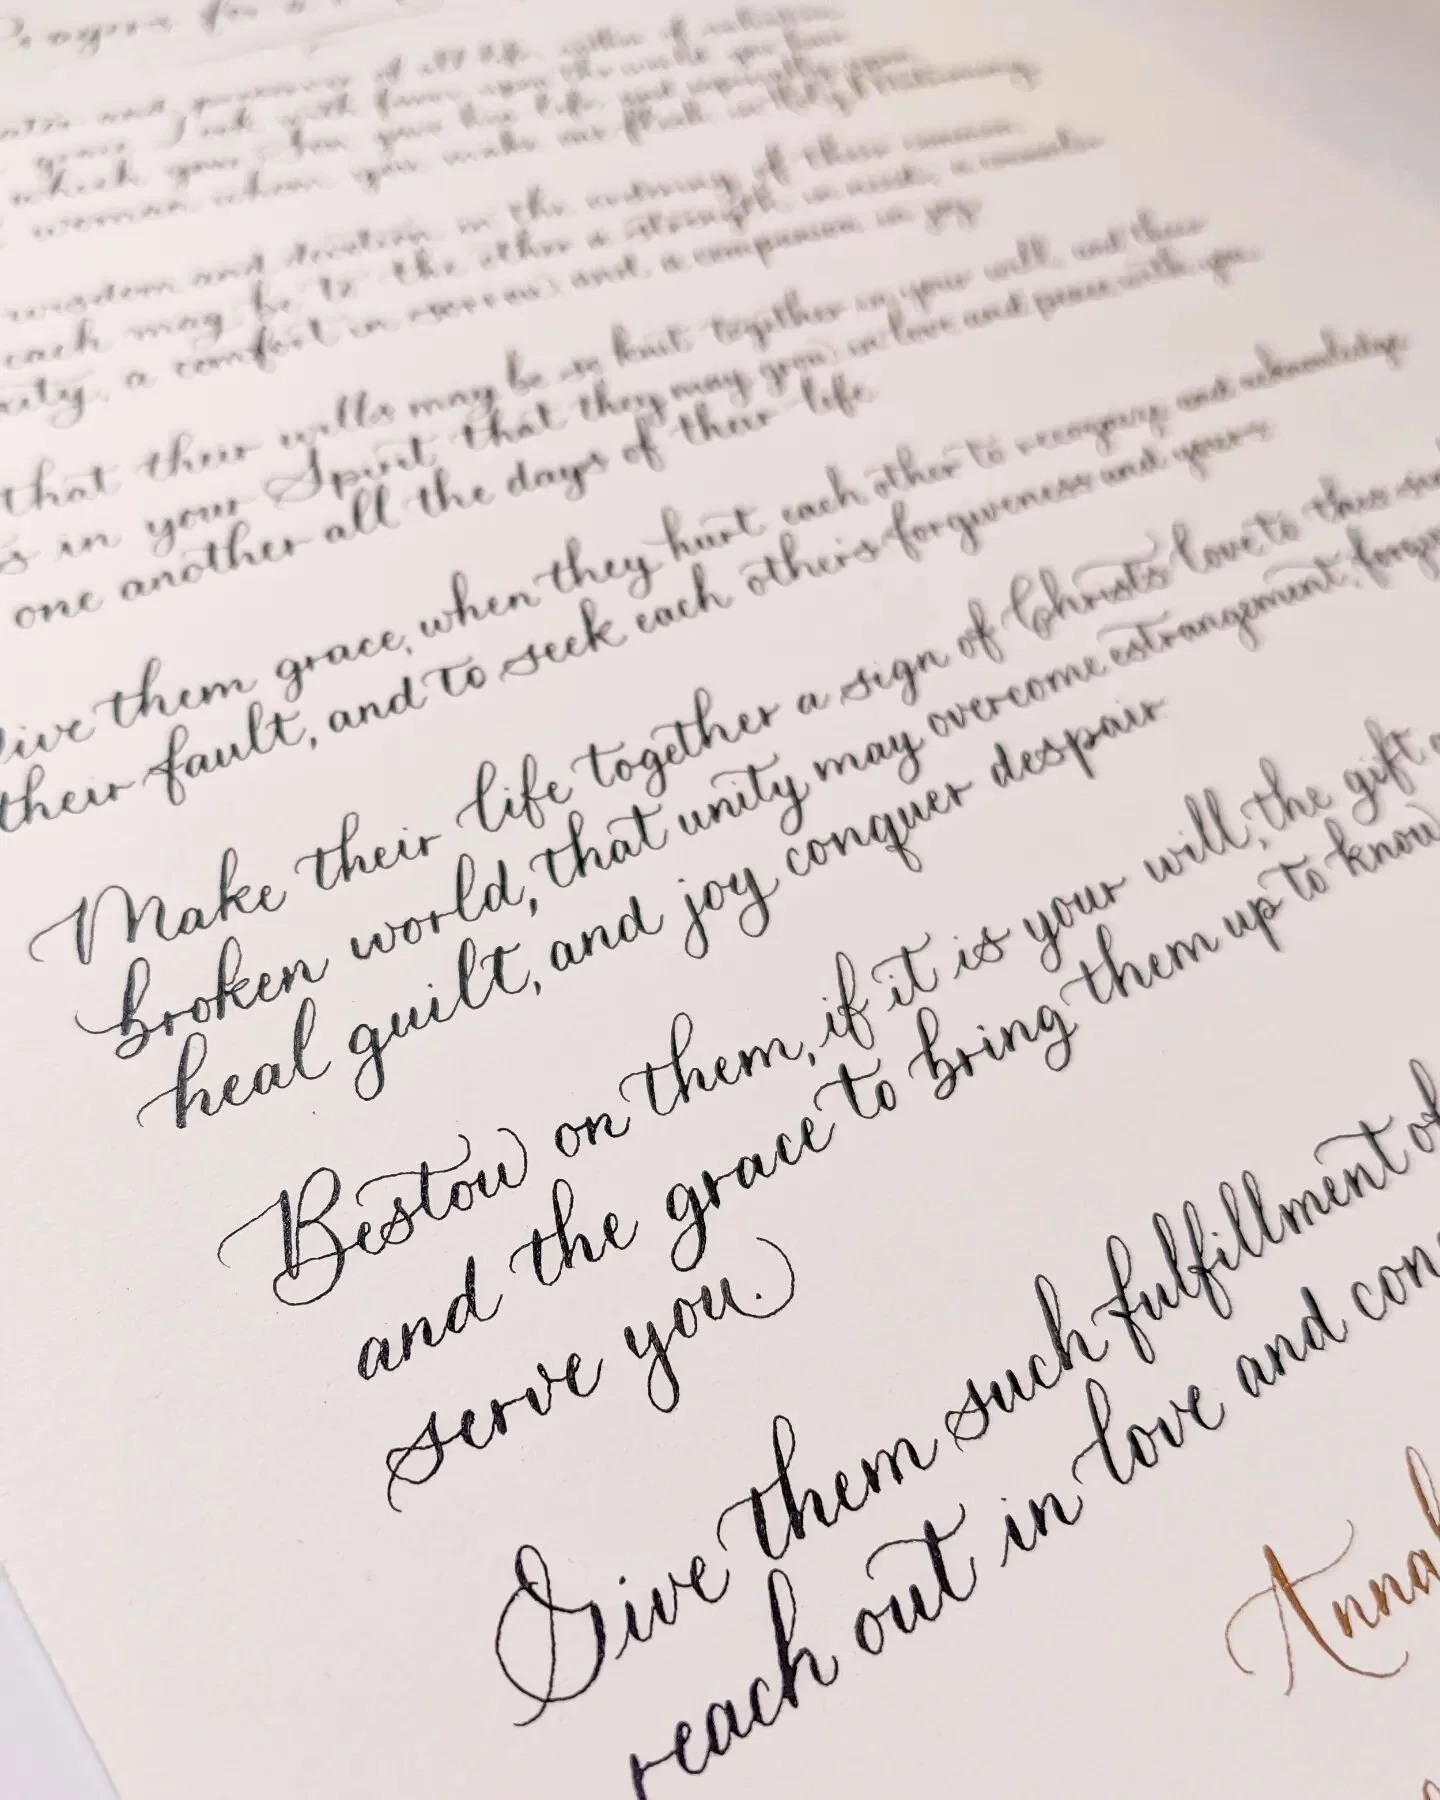 for a
and
grace look with favor upon the world you
which your Son gave his life, and especially upon
woman whom you make one flesh in Holy Matrimony
wisdom and devotion in the ordering of their common
each may be to the other a strength in need, a counselor
a comfort in sorrow, and a companion in joy.
that their wills may be so knit together in your will, and their
in your Spirit, that they may grow in love and peace with you
one another all the days of their life.
Give them grace, when they hurt each other to recognize and acknowledge
their fault, and to seek each others forgiveness and yours
Make their life together a sign of Christs love to this
broken world, that unity may overcome estrangement,
heal guilt, and joy conquer despair.
Bestow on them, if it is your will, the gift
and the grace to bring them up to know
serve you.
Give them such fulfillment of
reach out in love and